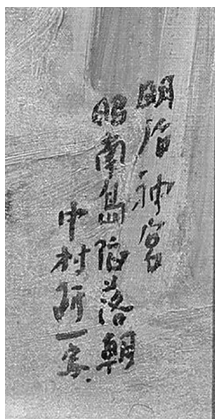 明治神宮
昭南島陥落朝
中村研一寫